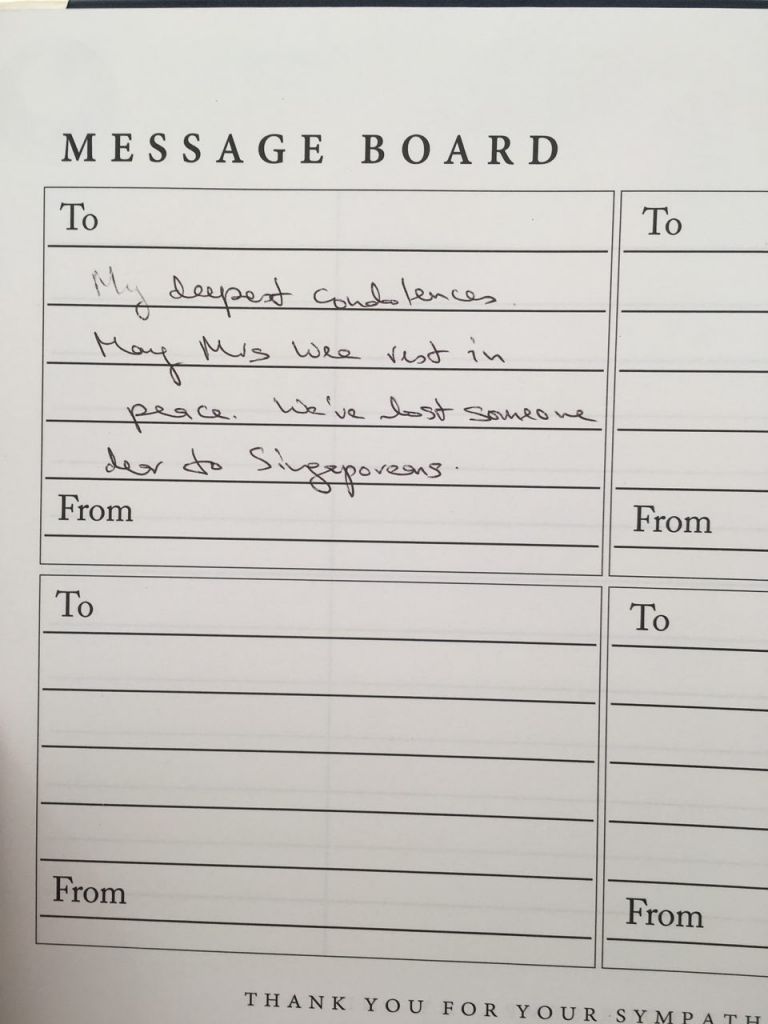 MESSAGE BOARD
To
My deepest condolences.
May Mrs Wee rest in
peace. We've lost someone
dear to Singaporeans.
From
To
From
To
From
To
From
THANK YOU FOR YOUR SYMPATH